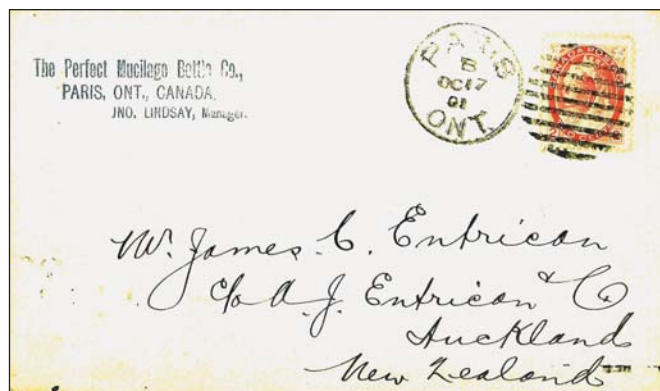 The Perfect Mucilage Bottle Co.,
PARIS, ONT., CANADA.
JNO. LINDSAY, Manager.
PARIS
B
OC 17
01
ONT.
CANADA POSTAGE
TWO CENTS
Mr. James C. Entrican
c/o A. J. Entrican & Co
Auckland
New Zealand